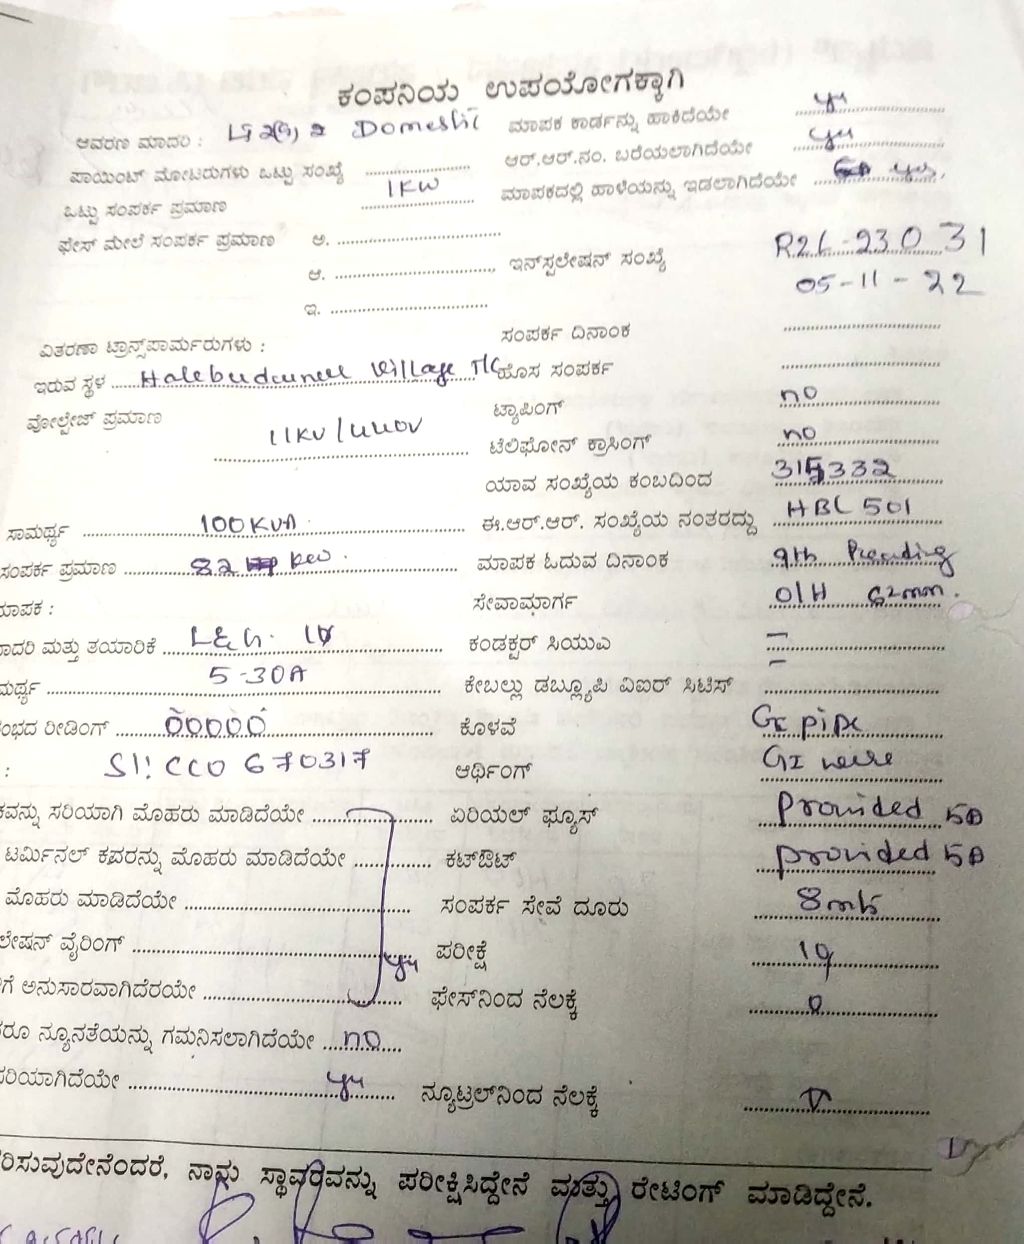 ಕಂಪನಿಯ ಉಪಯೋಗಕ್ಕಾಗಿ
ಆವರಣ ಮಾದರಿ : Domestic
ಪಾಯಿಂಟ್ ಮೋಟರುಗಳು ಒಟ್ಟು ಸಂಖ್ಯೆ
ಒಟ್ಟು ಸಂಪರ್ಕ ಪ್ರಮಾಣ 1KW
ಫೇಸ್ ಮೇಲೆ ಸಂಪರ್ಕ ಪ್ರಮಾಣ ಅ.
ಆ.
ಇ.
ವಿತರಣಾ ಟ್ರಾನ್ಸ್‌ಪಾರ್ಮರುಗಳು :
ಇರುವ ಸ್ಥಳ Village T/C
ವೋಲ್ಟೇಜ್ ಪ್ರಮಾಣ 11KV/440V
ಸಾಮರ್ಥ್ಯ 100KVA
ಸಂಪರ್ಕ ಪ್ರಮಾಣ 82 kw
ಮಾಪಕ :
ಮಾದರಿ ಮತ್ತು ತಯಾರಿಕೆ L&G.
ಮರ್ಥ್ಯ 5-30A
ಂಭದ ರೀಡಿಂಗ್ 00000
: Sl: CCO 670317
ಕವನ್ನು ಸರಿಯಾಗಿ ಮೊಹರು ಮಾಡಿದೆಯೇ
ಟರ್ಮಿನಲ್ ಕವರನ್ನು ಮೊಹರು ಮಾಡಿದೆಯೇ
ಮೊಹರು ಮಾಡಿದೆಯೇ
ಲೇಷನ್ ವೈರಿಂಗ್ yes
ಗೆ ಅನುಸಾರವಾಗಿದೆರಯೇ
ರೂ ನ್ಯೂನತೆಯನ್ನು ಗಮನಿಸಲಾಗಿದೆಯೇ no
ರಿಯಾಗಿದೆಯೇ yes
ಮಾಪಕ ಕಾರ್ಡನ್ನು ಹಾಕಿದೆಯೇ yes
ಆರ್.ಆರ್.ನಂ. ಬರೆಯಲಾಗಿದೆಯೇ yes
ಮಾಪಕದಲ್ಲಿ ಹಾಳೆಯನ್ನು ಇಡಲಾಗಿದೆಯೇ yes,
ಇನ್‌ಸ್ಟಲೇಷನ್ ಸಂಖ್ಯೆ R2L-23031
05-11-22
ಸಂಪರ್ಕ ದಿನಾಂಕ
ಹೊಸ ಸಂಪರ್ಕ
ಟ್ಯಾಪಿಂಗ್ no
ಟೆಲಿಫೋನ್ ಕ್ರಾಸಿಂಗ್ no
ಯಾವ ಸಂಖ್ಯೆಯ ಕಂಬದಿಂದ 315332
ಈ.ಆರ್.ಆರ್. ಸಂಖ್ಯೆಯ ನಂತರದ್ದು HBL 501
ಮಾಪಕ ಓದುವ ದಿನಾಂಕ 9th
ಸೇವಾಮಾರ್ಗ O/H
ಕಂಡಕ್ಟರ್ ಸಿಯುಎ
ಕೇಬಲ್ಲು ಡಬ್ಲ್ಯೂಪಿ ವಿಐರ್ ಸಿಟಿಸ್
ಕೊಳವೆ GI pipe
ಆರ್ಥಿಂಗ್ GI wire
ಏರಿಯಲ್ ಫ್ಯೂಸ್ provided 5A
ಕಟ್‌ಔಟ್ provided 5A
ಸಂಪರ್ಕ ಸೇವೆ ದೂರು 8mts
ಪರೀಕ್ಷೆ
ಫೇಸ್‌ನಿಂದ ನೆಲಕ್ಕೆ
ನ್ಯೂಟ್ರಲ್‌ನಿಂದ ನೆಲಕ್ಕೆ
ರಿಸುವುದೇನೆಂದರೆ, ನಾನು ಸ್ಥಾವರವನ್ನು ಪರೀಕ್ಷಿಸಿದ್ದೇನೆ ಮತ್ತು ರೇಟಿಂಗ್ ಮಾಡಿದ್ದೇನೆ.